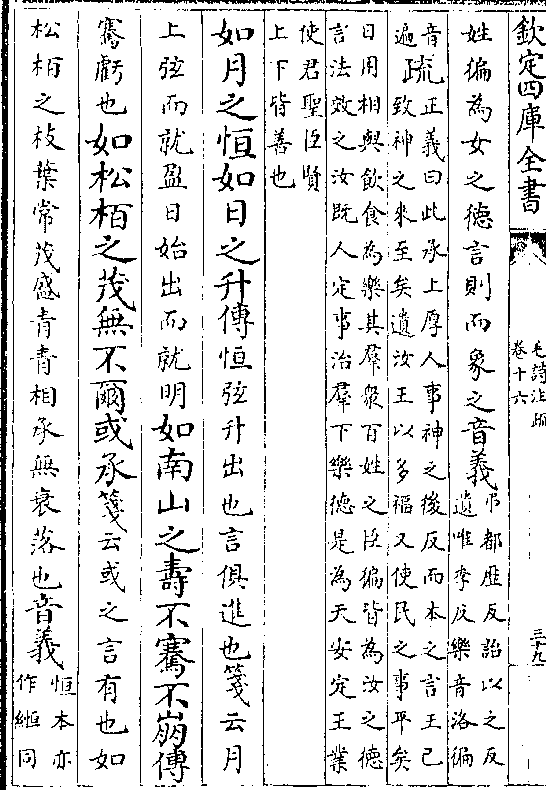 欽定四庫全書
毛詩注疏
卷十六
三十九
姓徧為女之德言則而象之音義
弔都歴反詒以之反
遺唯季反樂音洛徧
音
遍
疏
正義曰此承上厚人事神之後反而本之言王已
致神之來至矣遺汝王以多福又使民之事平矣
日用相與飲食為樂其羣衆百姓之臣徧皆為汝之德
言法效之汝既人定事治羣下樂德是為天安定王業
使君聖臣賢
上下皆善也
如月之恒如日之升傳恒弦升出也言俱進也箋云月
上弦而就盈日始出而就明如南山之壽不騫不崩傳
騫虧也如松柏之茂無不爾或承箋云或之言有也如
松柏之枝葉常茂盛青青相承無衰落也音義
恒本亦
作縆同